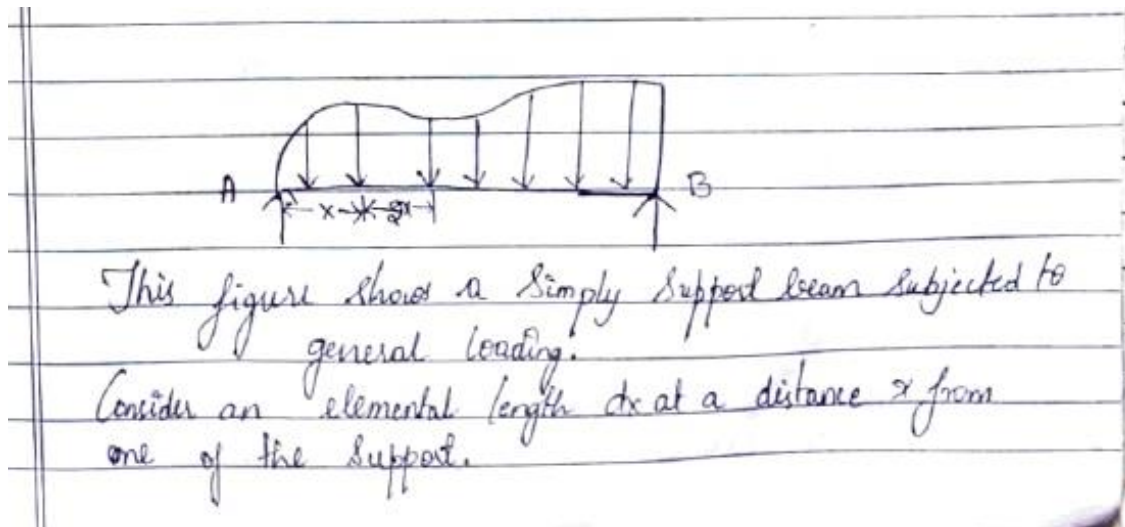 A B
x
This figure shows a Simply Support beam subjected to
general loading.
Consider an elemental length dx at a distance x from
one of the support.